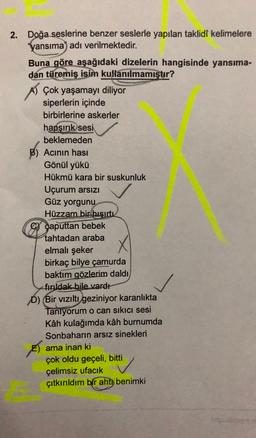 2. Doğa seslerine benzer seslerle yapılan taklidî kelimelere
"yansıma" adı verilmektedir.
Buna göre aşağıdaki dizelerin hangisinde yansıma-
dan türemiş isim kullanılmamıştır?
A) Çok yaşamayı diliyor
siperlerin içinde
birbirlerine askerler
hapşırık sesi
beklemeden
B) Acının hası
Gönül yükü
Hükmü kara bir suskunluk
Uçurum arsızı
Güz yorgunu
Hüzzam bir hışırtı
C) çaputtan bebek
tahtadan araba
elmalı şeker
birkaç bilye çamurda
baktım gözlerim daldı
fırıldak bile vardı
D) Bir vızıltı geziniyor karanlıkta
Tanıyorum o can sıkıcı sesi
Kâh kulağımda kâh burnumda
Sonbaharın arsız sinekleri
E) ama inan ki
çok oldu geçeli, bitti
çelimsiz ufacık
çıtkırıldım bir ahtı benimki